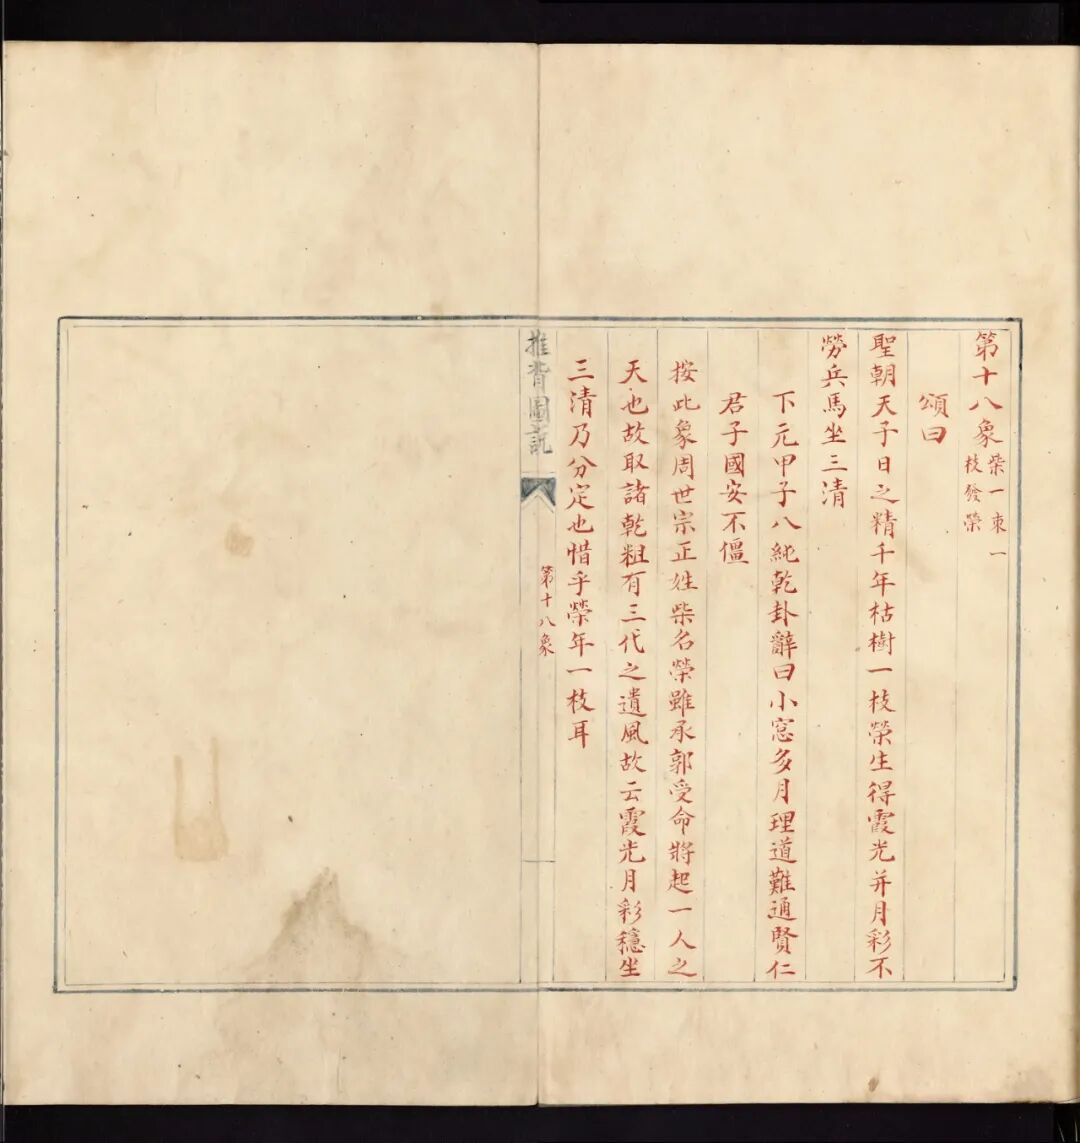 第十八象柴一束一
枝發榮
頌曰
聖朝天子日之精千年枯樹一枝榮生得霞光并月彩不
勞兵馬坐三清
下元甲子八純乾卦辭曰小窓多月理道難通賢仁
君子國安不僵
按此象周世宗正姓柴名榮雖承郭受命將起一人之
天也故取諸乾粗有三代之遺風故云霞光月彩穩坐
三清乃分定也惜乎榮年一枝耳
推背圖說
第十八象